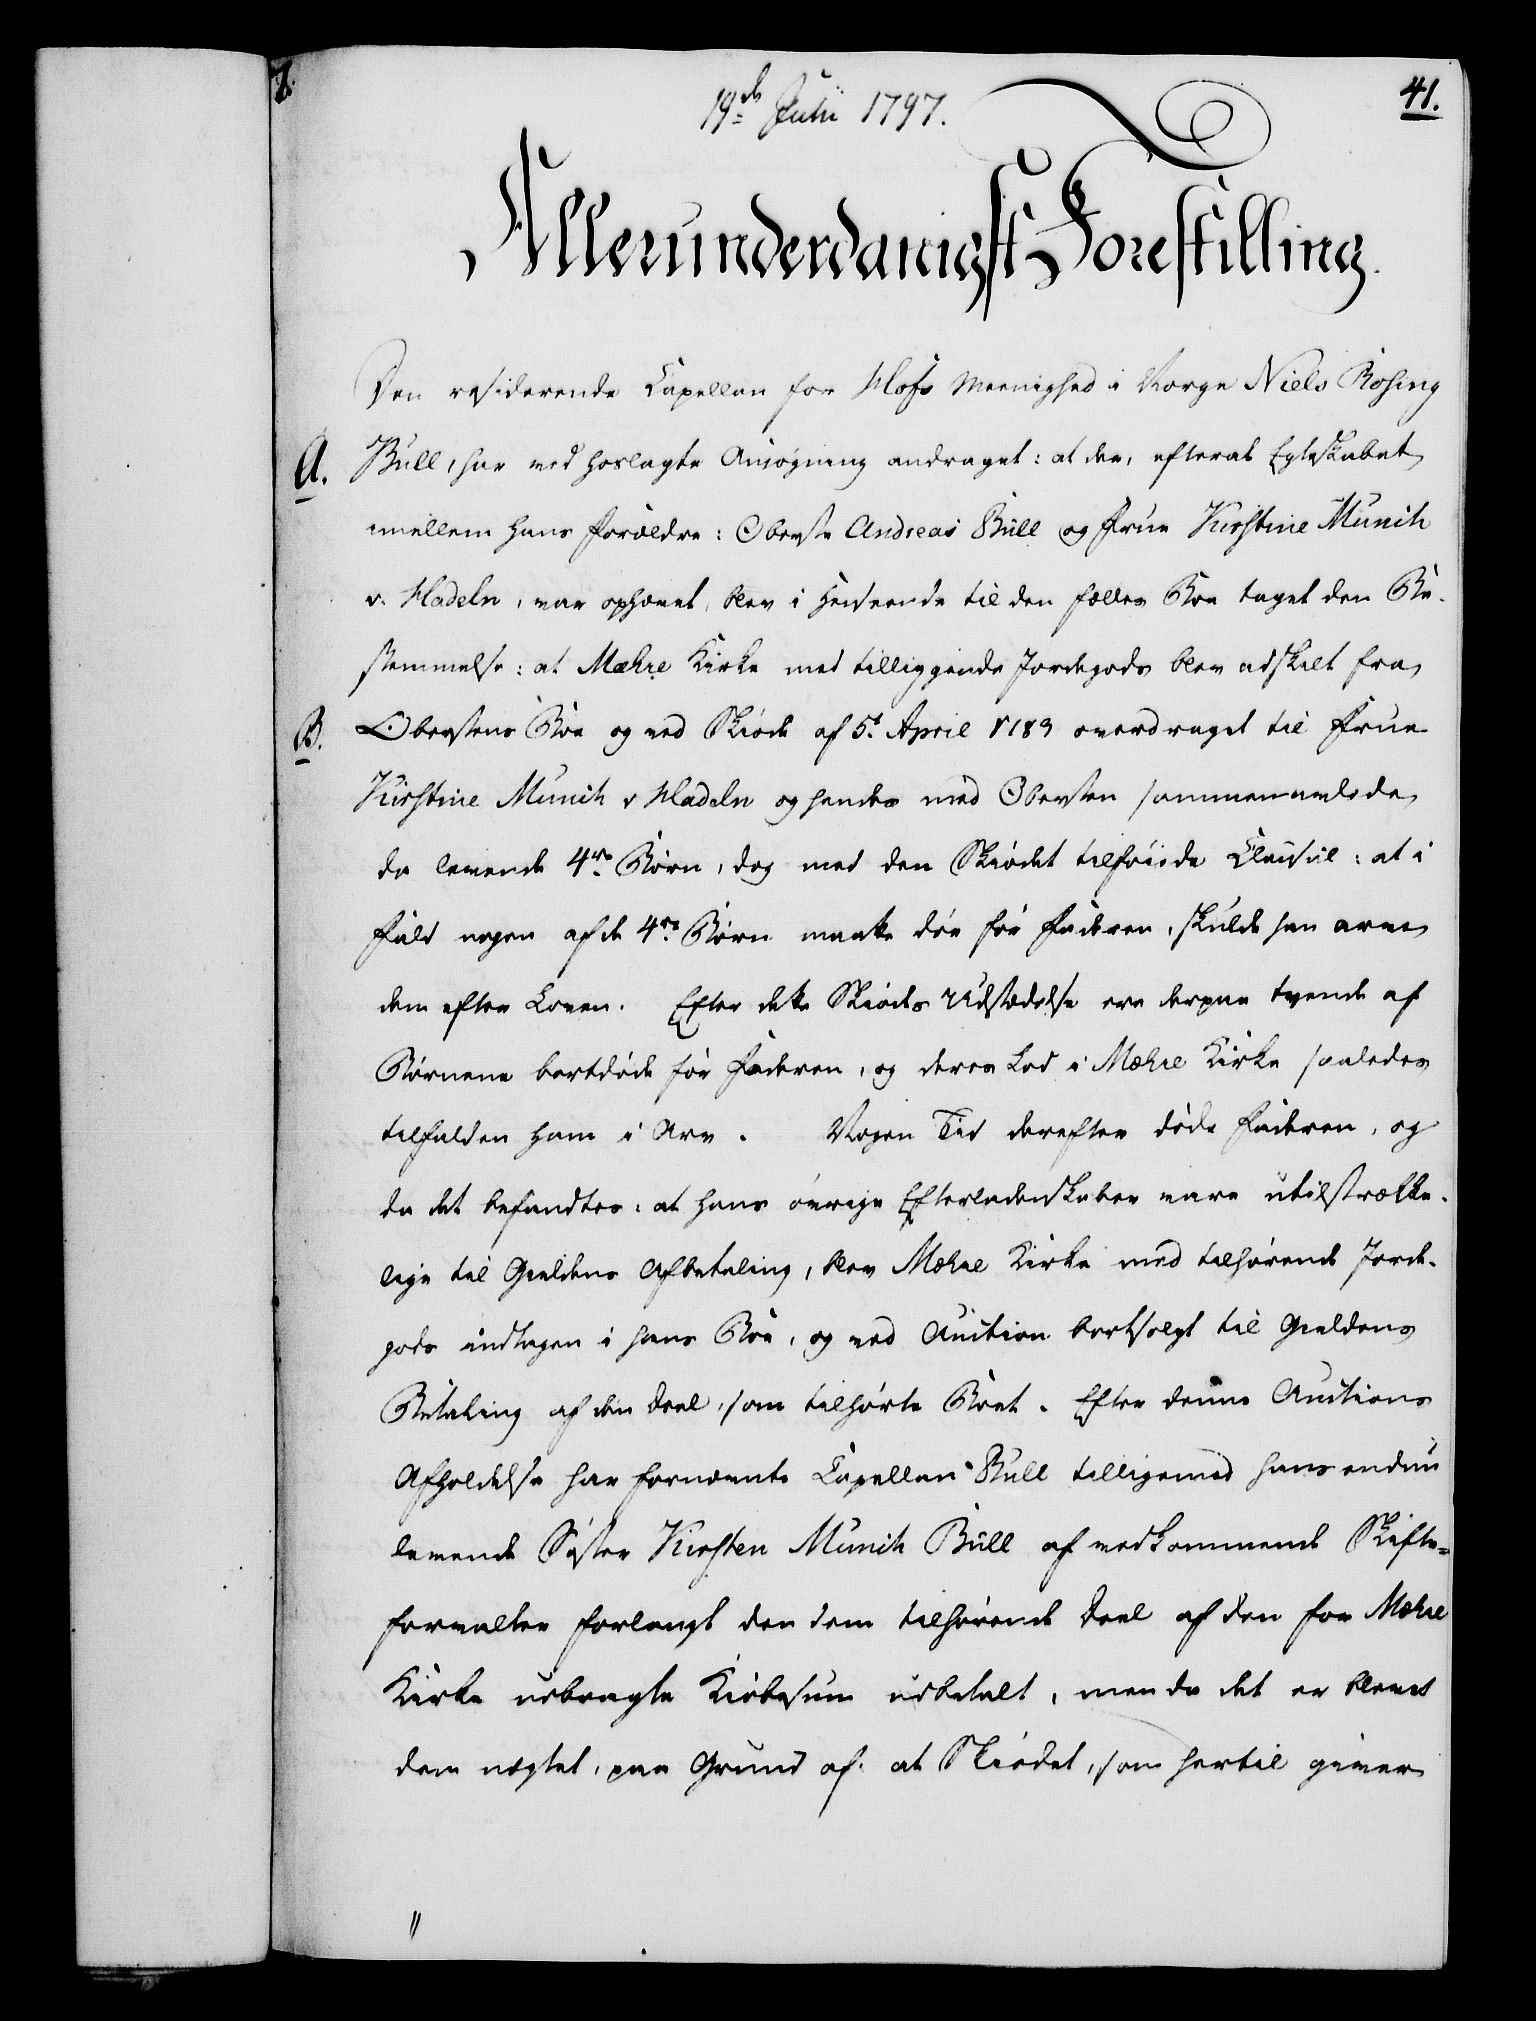 41.
19de Julii 1797.
Allerunderdanigst Forestilling.
Den residerende Capellan for Hofs Meenighed i Norge Niels Rosing
A. Büll, har ved hoslagte Ansøgning andraget: at der, efterat Egteskabet
imellem hans Forældre: Oberste Andreas Büll og Frue Kirstine Munch
v. Hadeln, var ophævet, blev i Henseende til den fælles Boe taget den Be-
stemmelse: at Mæhre Kirke med tilliggende Jordegods blev adskilt fra
B. Oberstens Boe og ved Skiøde af 5t April 1783 overdraget til Frue
Kirstine Munch v Hadeln og hendes med Obersten sammenavlede
da levende 4re Børn, dog med den Skiødet tilføiede Clausul: at i
Fald nogen af de 4re Børn maatte døe før Faderen, skulde han arve
dem efter Loven. Efter dette Skiødes Udstædelse ere derpaa tvende af
Børnene bortdøde før Faderen, og deres Lod i Mæhre Kirke saaledes
tilfalden ham i Arv. Nogen Tid derefter døde Faderen, og
da det befandtes: at hans øvrige Efterladenskaber vare utilstrække-
lige til Gieldens Afbetaling, blev Mæhre Kirke med tilhørende Jorde-
gods indtagen i hans Boe, og ved Auction bortsolgt til Gieldens
Betaling af den Deel, som tilhørte Boet. Efter denne Auctions
Afholdelse har fornævnte Capellan Bull tilligemed hans endnu
levende Søster Kirsten Munch Büll af vedkommende Skifte-
forvalter forlangt den dem tilhørende Deel af den for Mæhre
Kirke udbragte Kiøbesum udbetalt, men da det er blevet
dem nægtet, paa Grund af: at Skiødet, som hertil giver